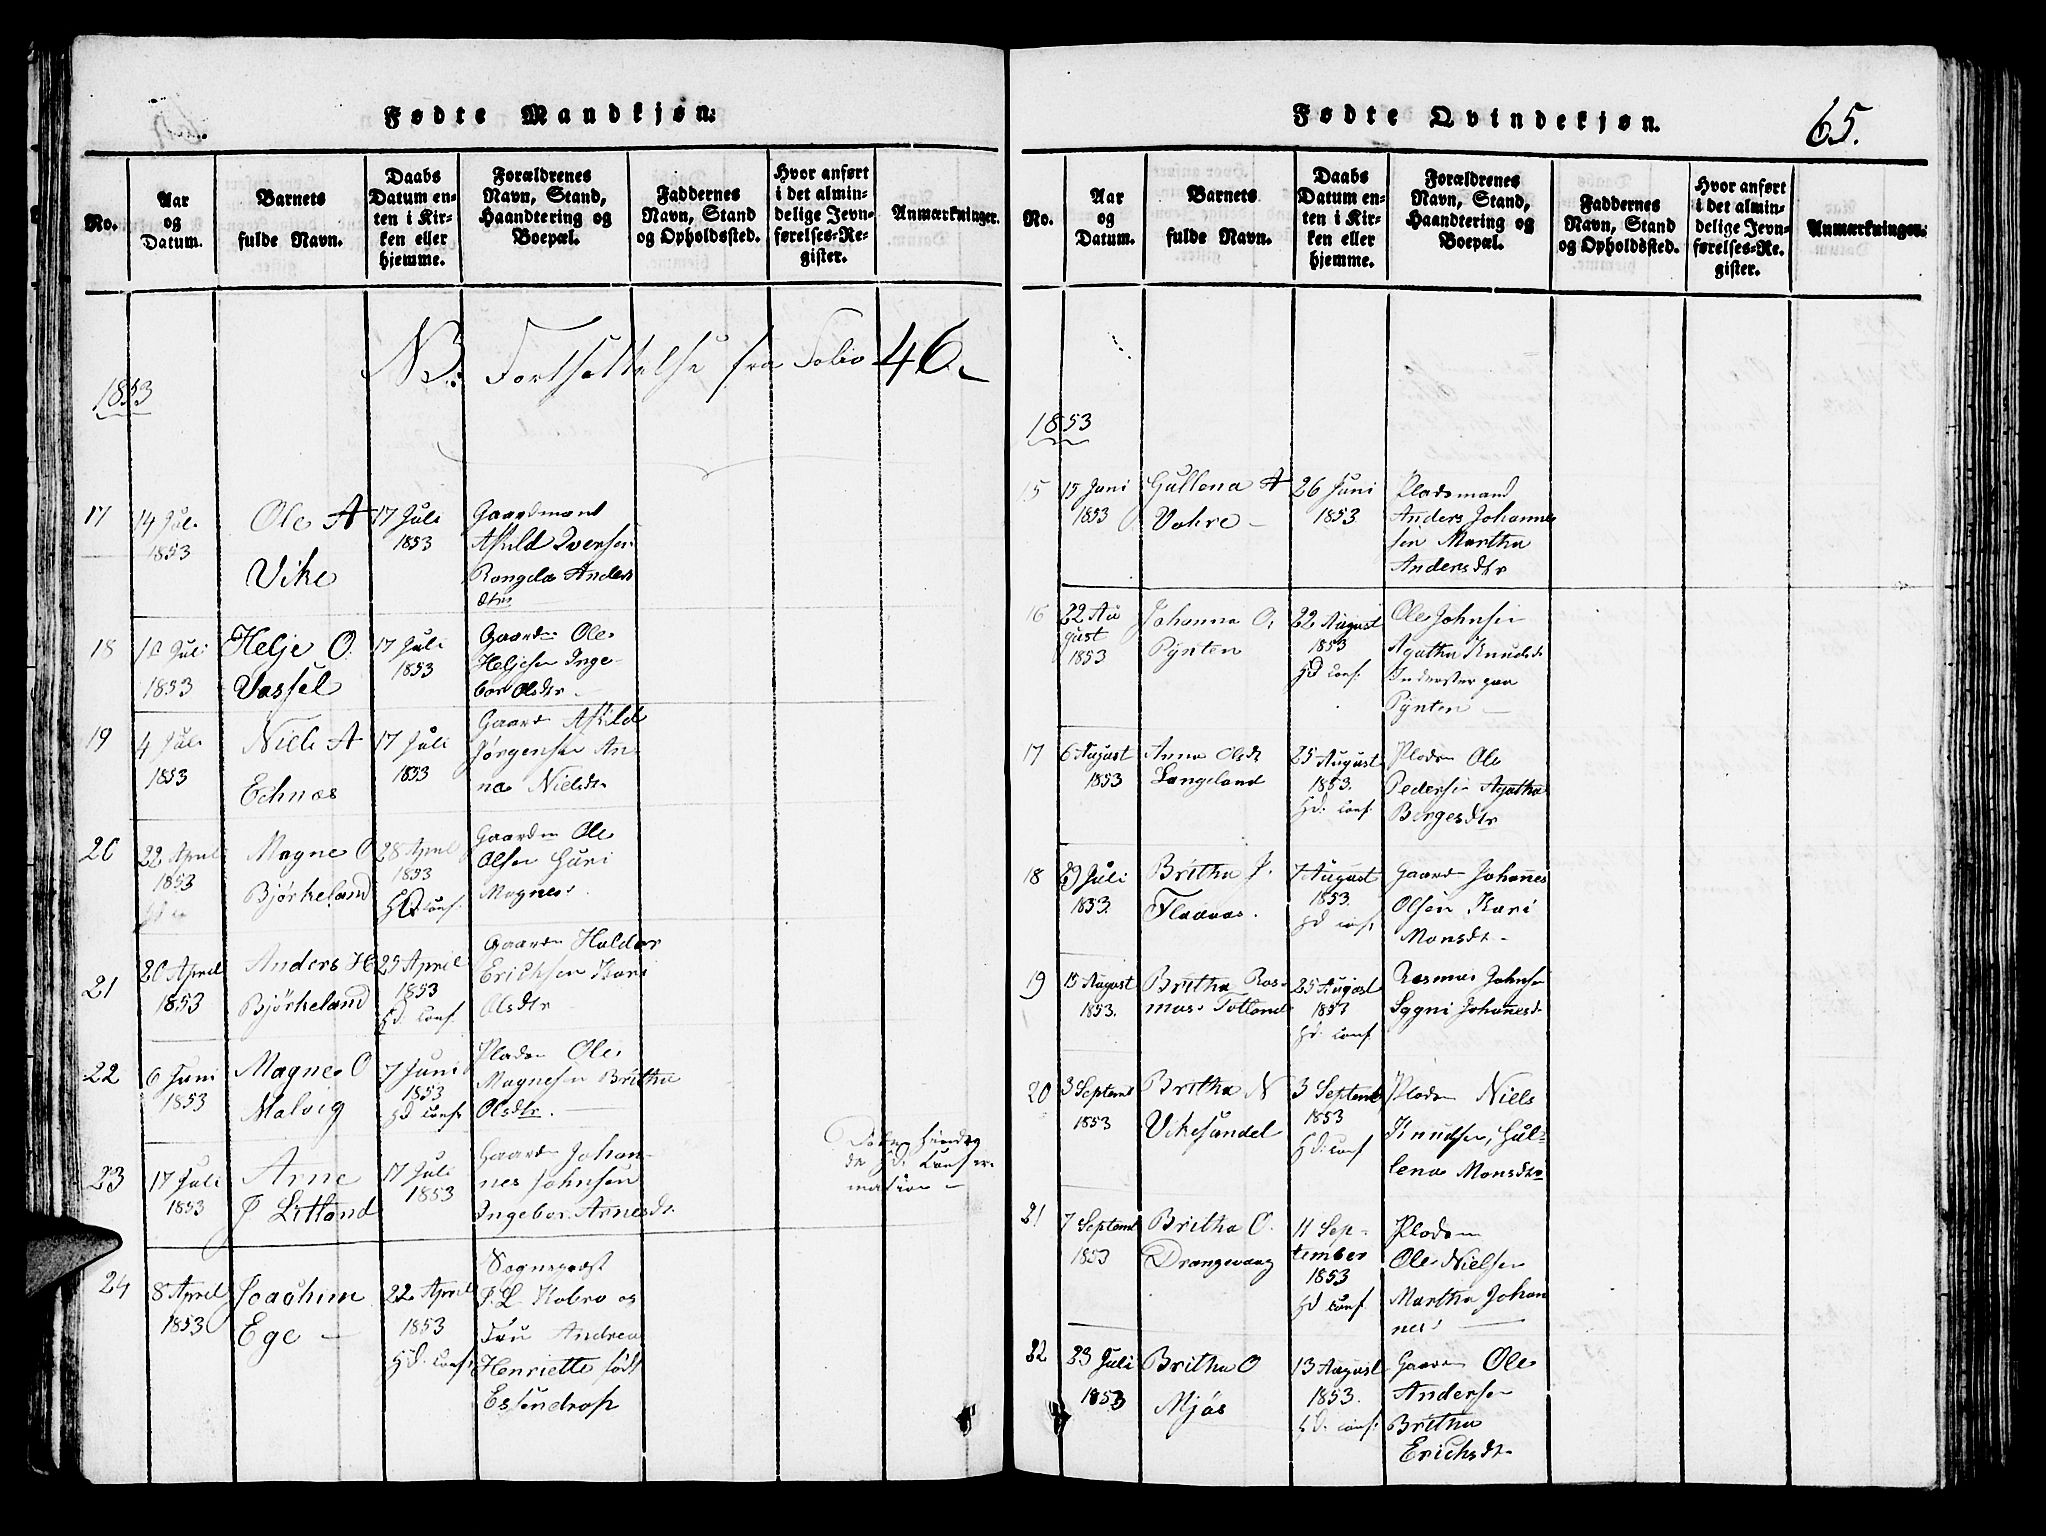 Fødte Mandkjøn.
No.
Aar og Datum.
Barnets fulde Navn.
Daabs Datum enten i Kirken eller hjemme.
Forældrenes Navn, Stand, Haandtering og Boepæl.
Faddernes Navn, Stand og Opholdssted.
Hvor anført i det almindelige Jevnførelses-Register.
Anmærkninger.
NB: Fortsettelse fra Folio 46
1853
17 14 Juli 1853 Ole A Vike 17 Juli 1853 Gaardmand Askild Iversen Rangela Andersdtr
18 Juli 1853 Helje O. Vassel 17 Juli 1853 Gaardm Ole Heljesen Ingebor Olsdtr
19 4 Juli 1853 Niels A Echnæs 17 Juli 1853 Gaardm Askild Jørgensen Anna Nielsdtr
20 22 April 1853 Magne O Bjørkeland 28 April 1853 HD Conf. Gaardm Ole Olsen Guri Magnes
21 20 April 1853 Anders H Bjørkeland 29 April 1853 HD. Conf. Gaardm Haldor Erichsen Kari Olsdtr
22 6 Juni 1853 Magne O Malvig 7 Juni 1853 HD Conf. Pladsm Ole Magnesen Britha Olsdtr.
23 17 Juli 1853 Arne J Litland 17 Juli 1853 Gaardm Johannes Johnsen Ingebor. Arnesdt.
HD. Confermation
24 8 April 1853 Joachim Ege 22 April 1853 HD. Conf. Sognepræst J. L. Kobro og Fru Andrea Henriette født Essendrop
Fødte Qvindekjøn.
65.
No.
Aar og Datum.
Barnets fulde Navn.
Daabs Datum enten i Kirken eller hjemme.
Forældrenes Navn, Stand, Haandtering og Boepæl.
Faddernes Navn, Stand og Opholdssted.
Hvor anført i det almindelige Jevnførelses-Register.
Anmærkninger.
1853
15 15 Juni 1853 Gullena A Vahre 26 Juni 1853 Pladsmand Anders Johannesen Martha Andersdtr
16 22 August 1853 Johanna O. Pynten 22 August 1853 HD Conf. Ole Johnsen Agatha Knudsdt Inderster paa Pynten
17 6 August 1853 Anna Olsdt Langeland 25 August 1853. HD. Conf. Pladsm Ole Pedersen Agatha Børgesdtr
18 29 Juli 1853. Britha J. Flaanæs. 7 August 1853. HD Conf. Gaardm Johannes Olsen Kari Monsdt
19 15 August 1853. Britha Rasmus Totland 25 August 1853 HD. Conf. Rasmus Johnsen Sygni Johanesdt
20 3 Septemb 1853 Britha N Vikesundel 3 Septemb 1853 HD. Conf Pladsm Niels Knudsen, Gullena Monsdtr
21 7 Septemb 1853 Britha O. Drangevaag 11 September 1853 HD Conf. Pladsm Ole Nielsen Martha Johannes
22 23 Juli 1853 Britha O Mjøs 13 August 1853. HD. Conf. Gaardm Ole Andersen Britha Erichsdt